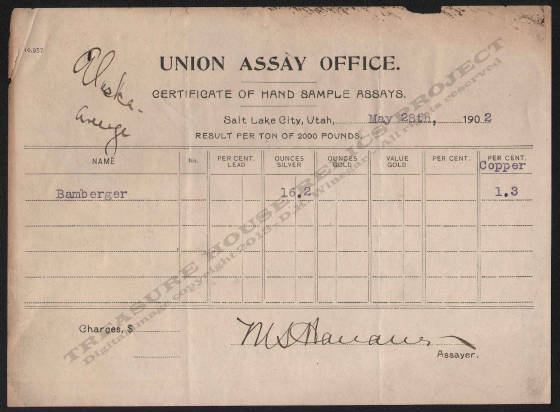 10,957
Alaska
average
UNION ASSAY OFFICE.
CERTIFICATE OF HAND SAMPLE ASSAYS.
Salt Lake City, Utah, May 28th, 1902
RESULT PER TON OF 2000 POUNDS.
NAME No. PER CENT. LEAD OUNCES SILVER OUNCES GOLD VALUE GOLD PER CENT. PER CENT. Copper
Bamberger 16.2 1.3
Charges, $
M S Hanauer
Assayer.
TREASURE HOUSE RELICS PROJECT
Digital image copyright 2013- All rights reserved